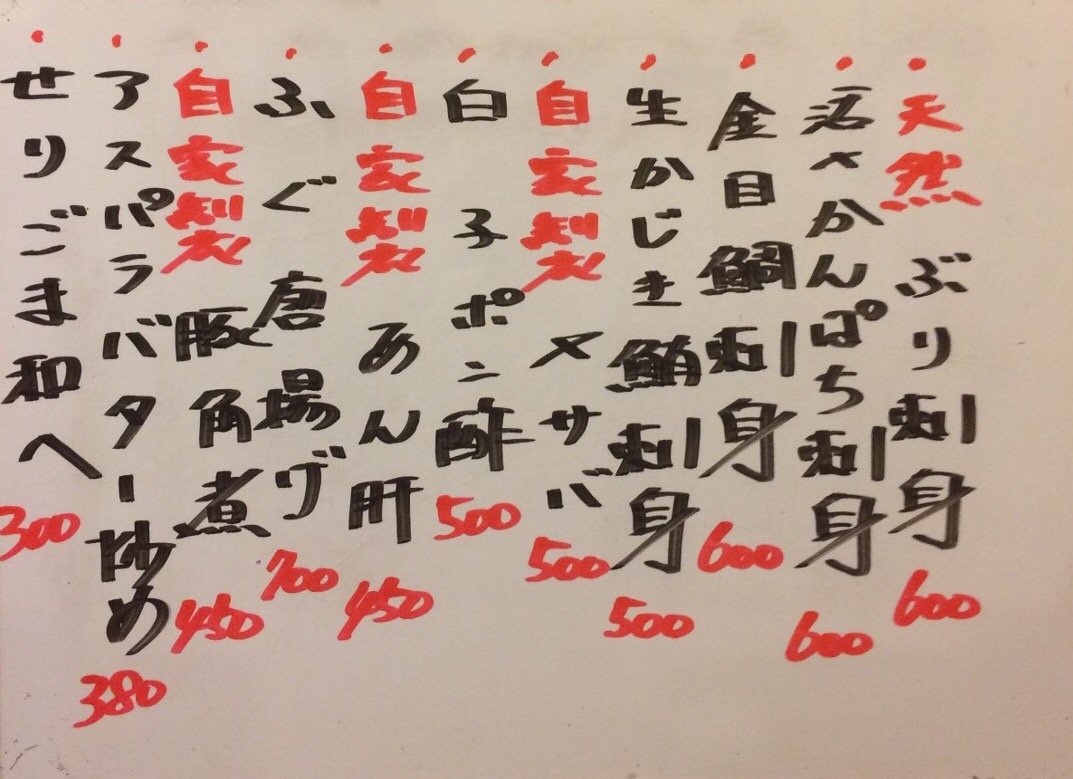 ・天然 ぶり刺身 600
・活〆かんぱち刺身 600
・金目鯛刺身 600
・生かじき鮪刺身 500
・自家製 〆サバ 500
・白子ポン酢 500
・自家製 あん肝 450
・ふぐ唐揚げ 700
・自家製 豚角煮 450
・アスパラバター炒め 380
・せりごま和へ 300